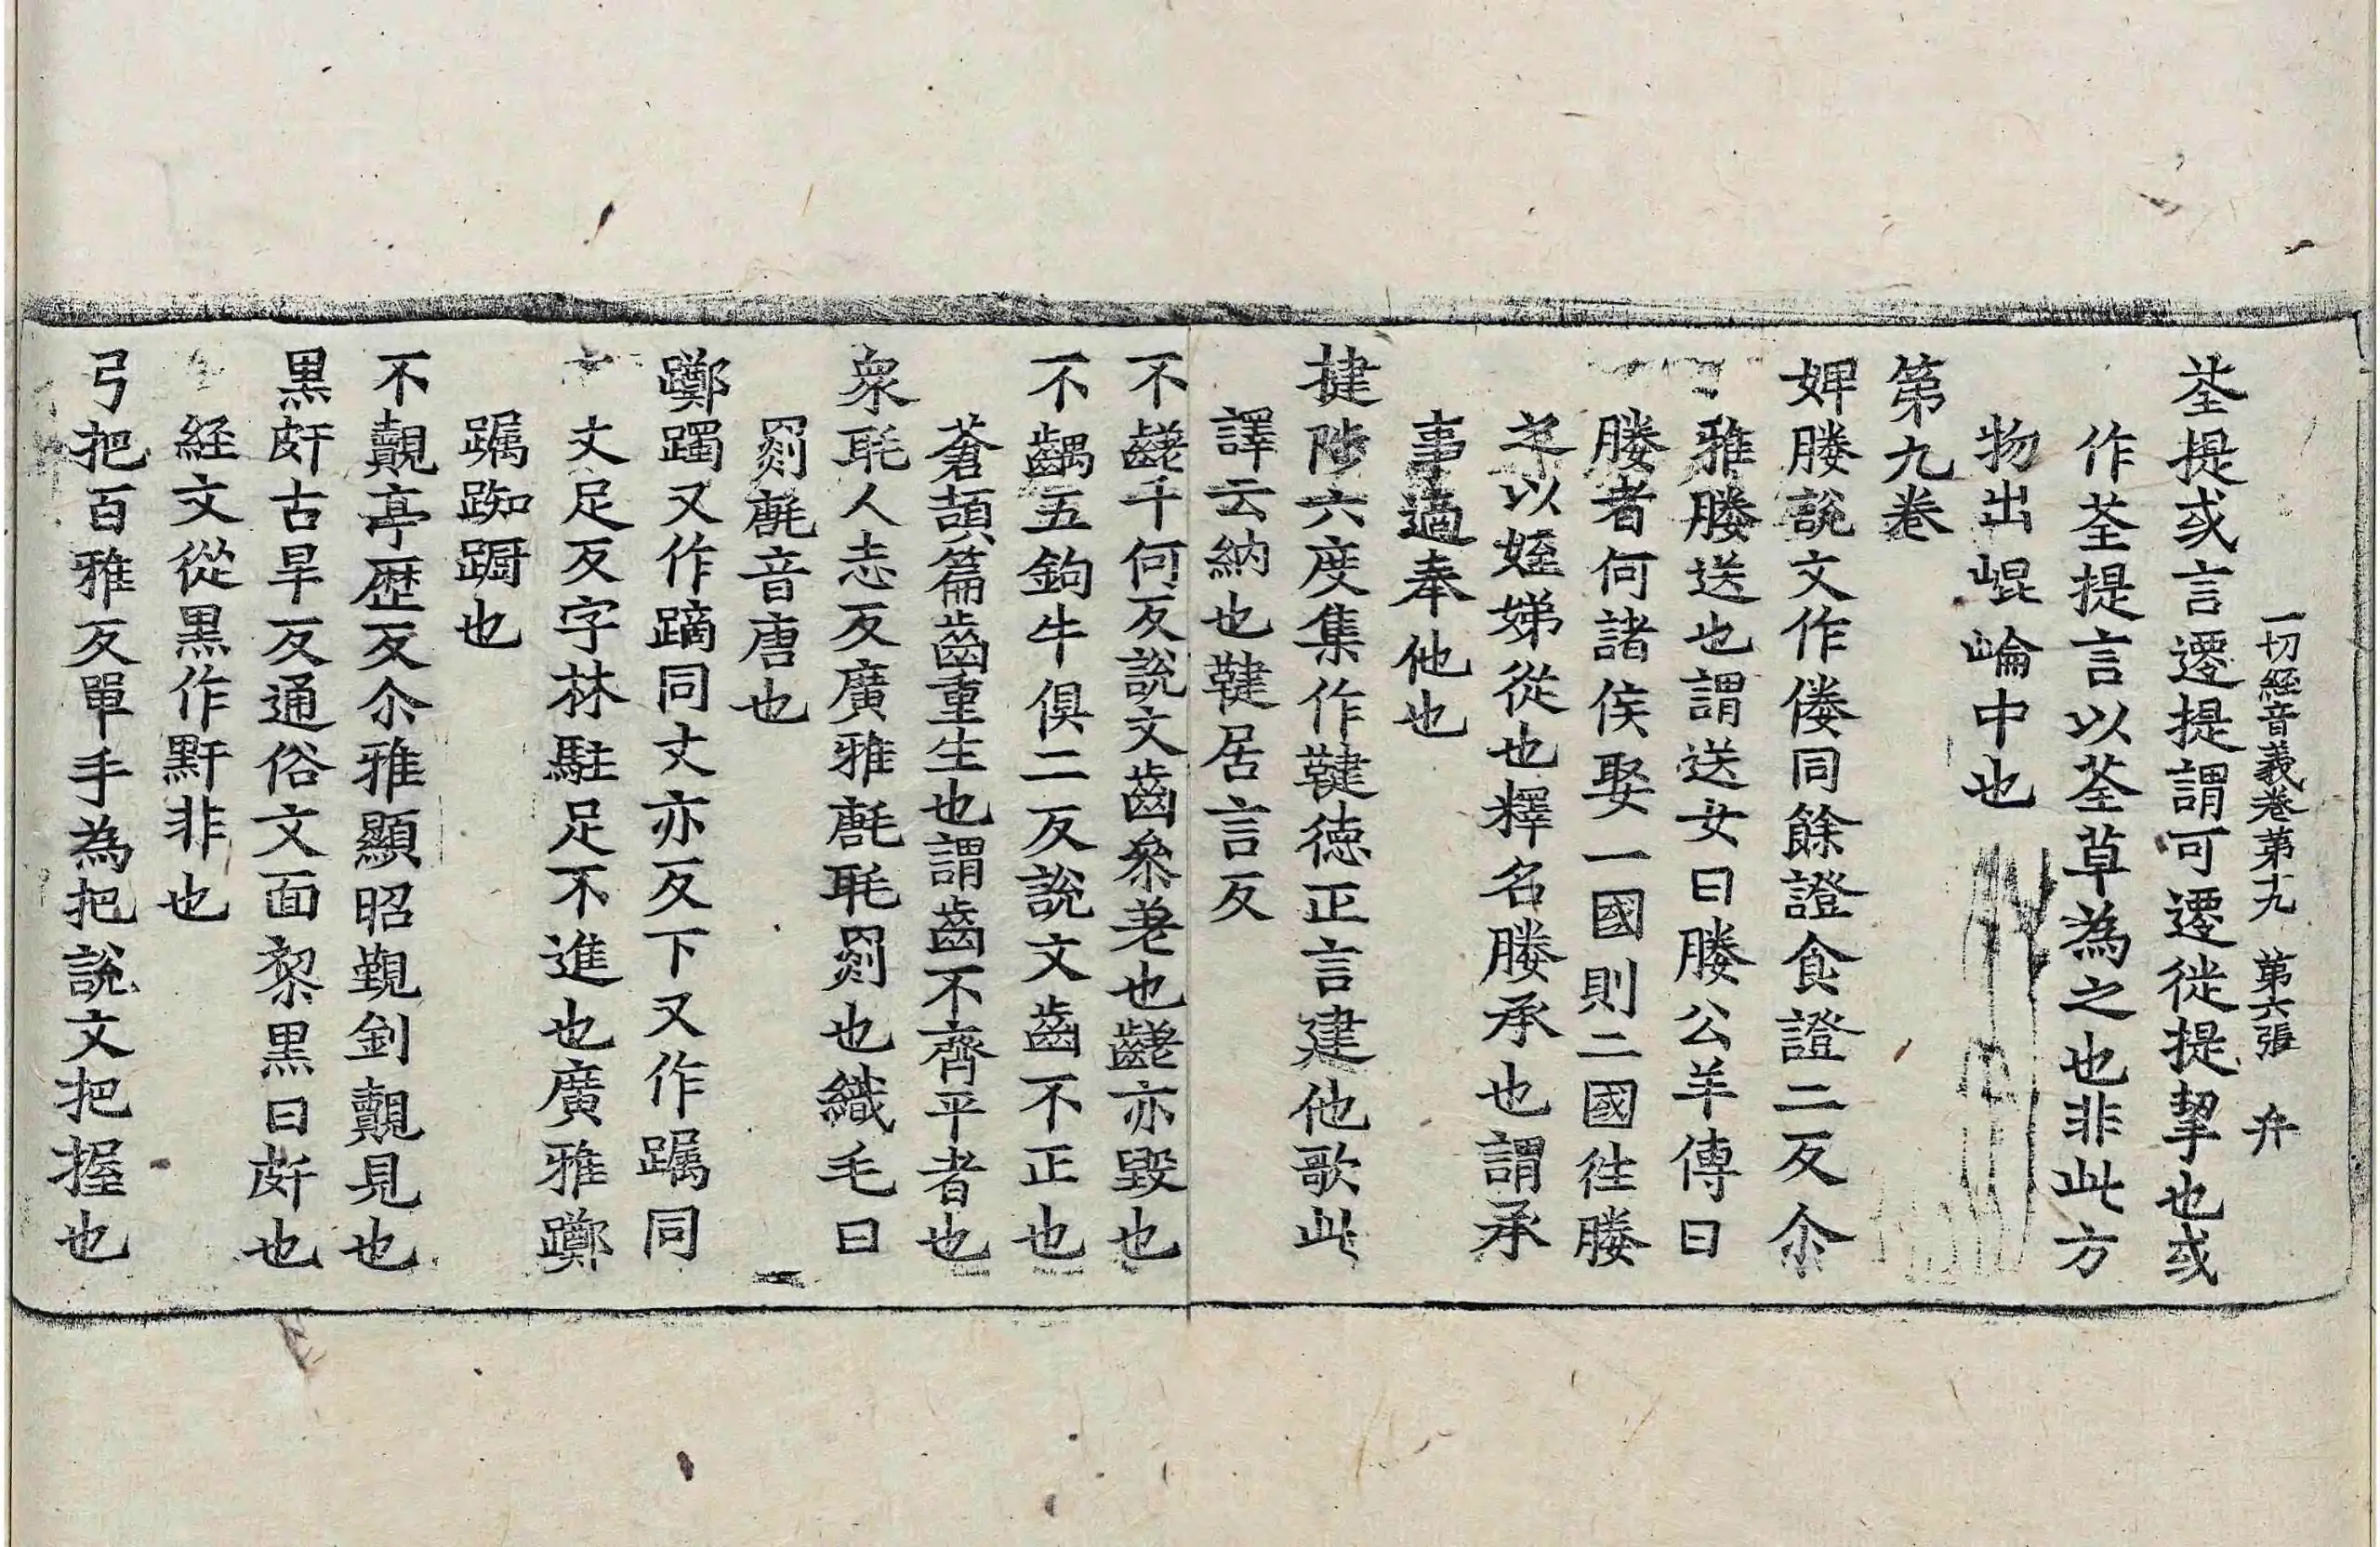 一切経音義卷第十九 第六張 弁
荃提或言遷提謂可遷徙提挈也或
作荃提言以荃草為之也非此方
物出崐崘中也
第九卷
婢媵說文作倐同餘證食證二反尒
雅媵送也謂送女曰媵公羊傳曰
媵者何諸侯娶一國則二國往媵
之以姪娣從也釋名媵承也謂承
事適奉他也
揵陟六度集作鞬德正言建他歌此
譯云納也鞬居言反
不齹千何反說文齒叅差也齹亦毀也
不齵五鉤牛俱二反說文齒不正也
蒼頡篇齒重生也謂齒不齊平者也
衆毦人志反廣雅㲪毦罽也織毛曰
罽㲪音唐也
躑躅又作蹢同丈亦反下又作躅同
丈足反字林駐足不進也廣雅躑
躅跢跦也
不覿亭歷反尒雅顯昭覲釗覿見也
黒皯古旱反通俗文面黎黒曰皯也
経文從黒作䵟非也
弓把百雅反單手為把說文把握也